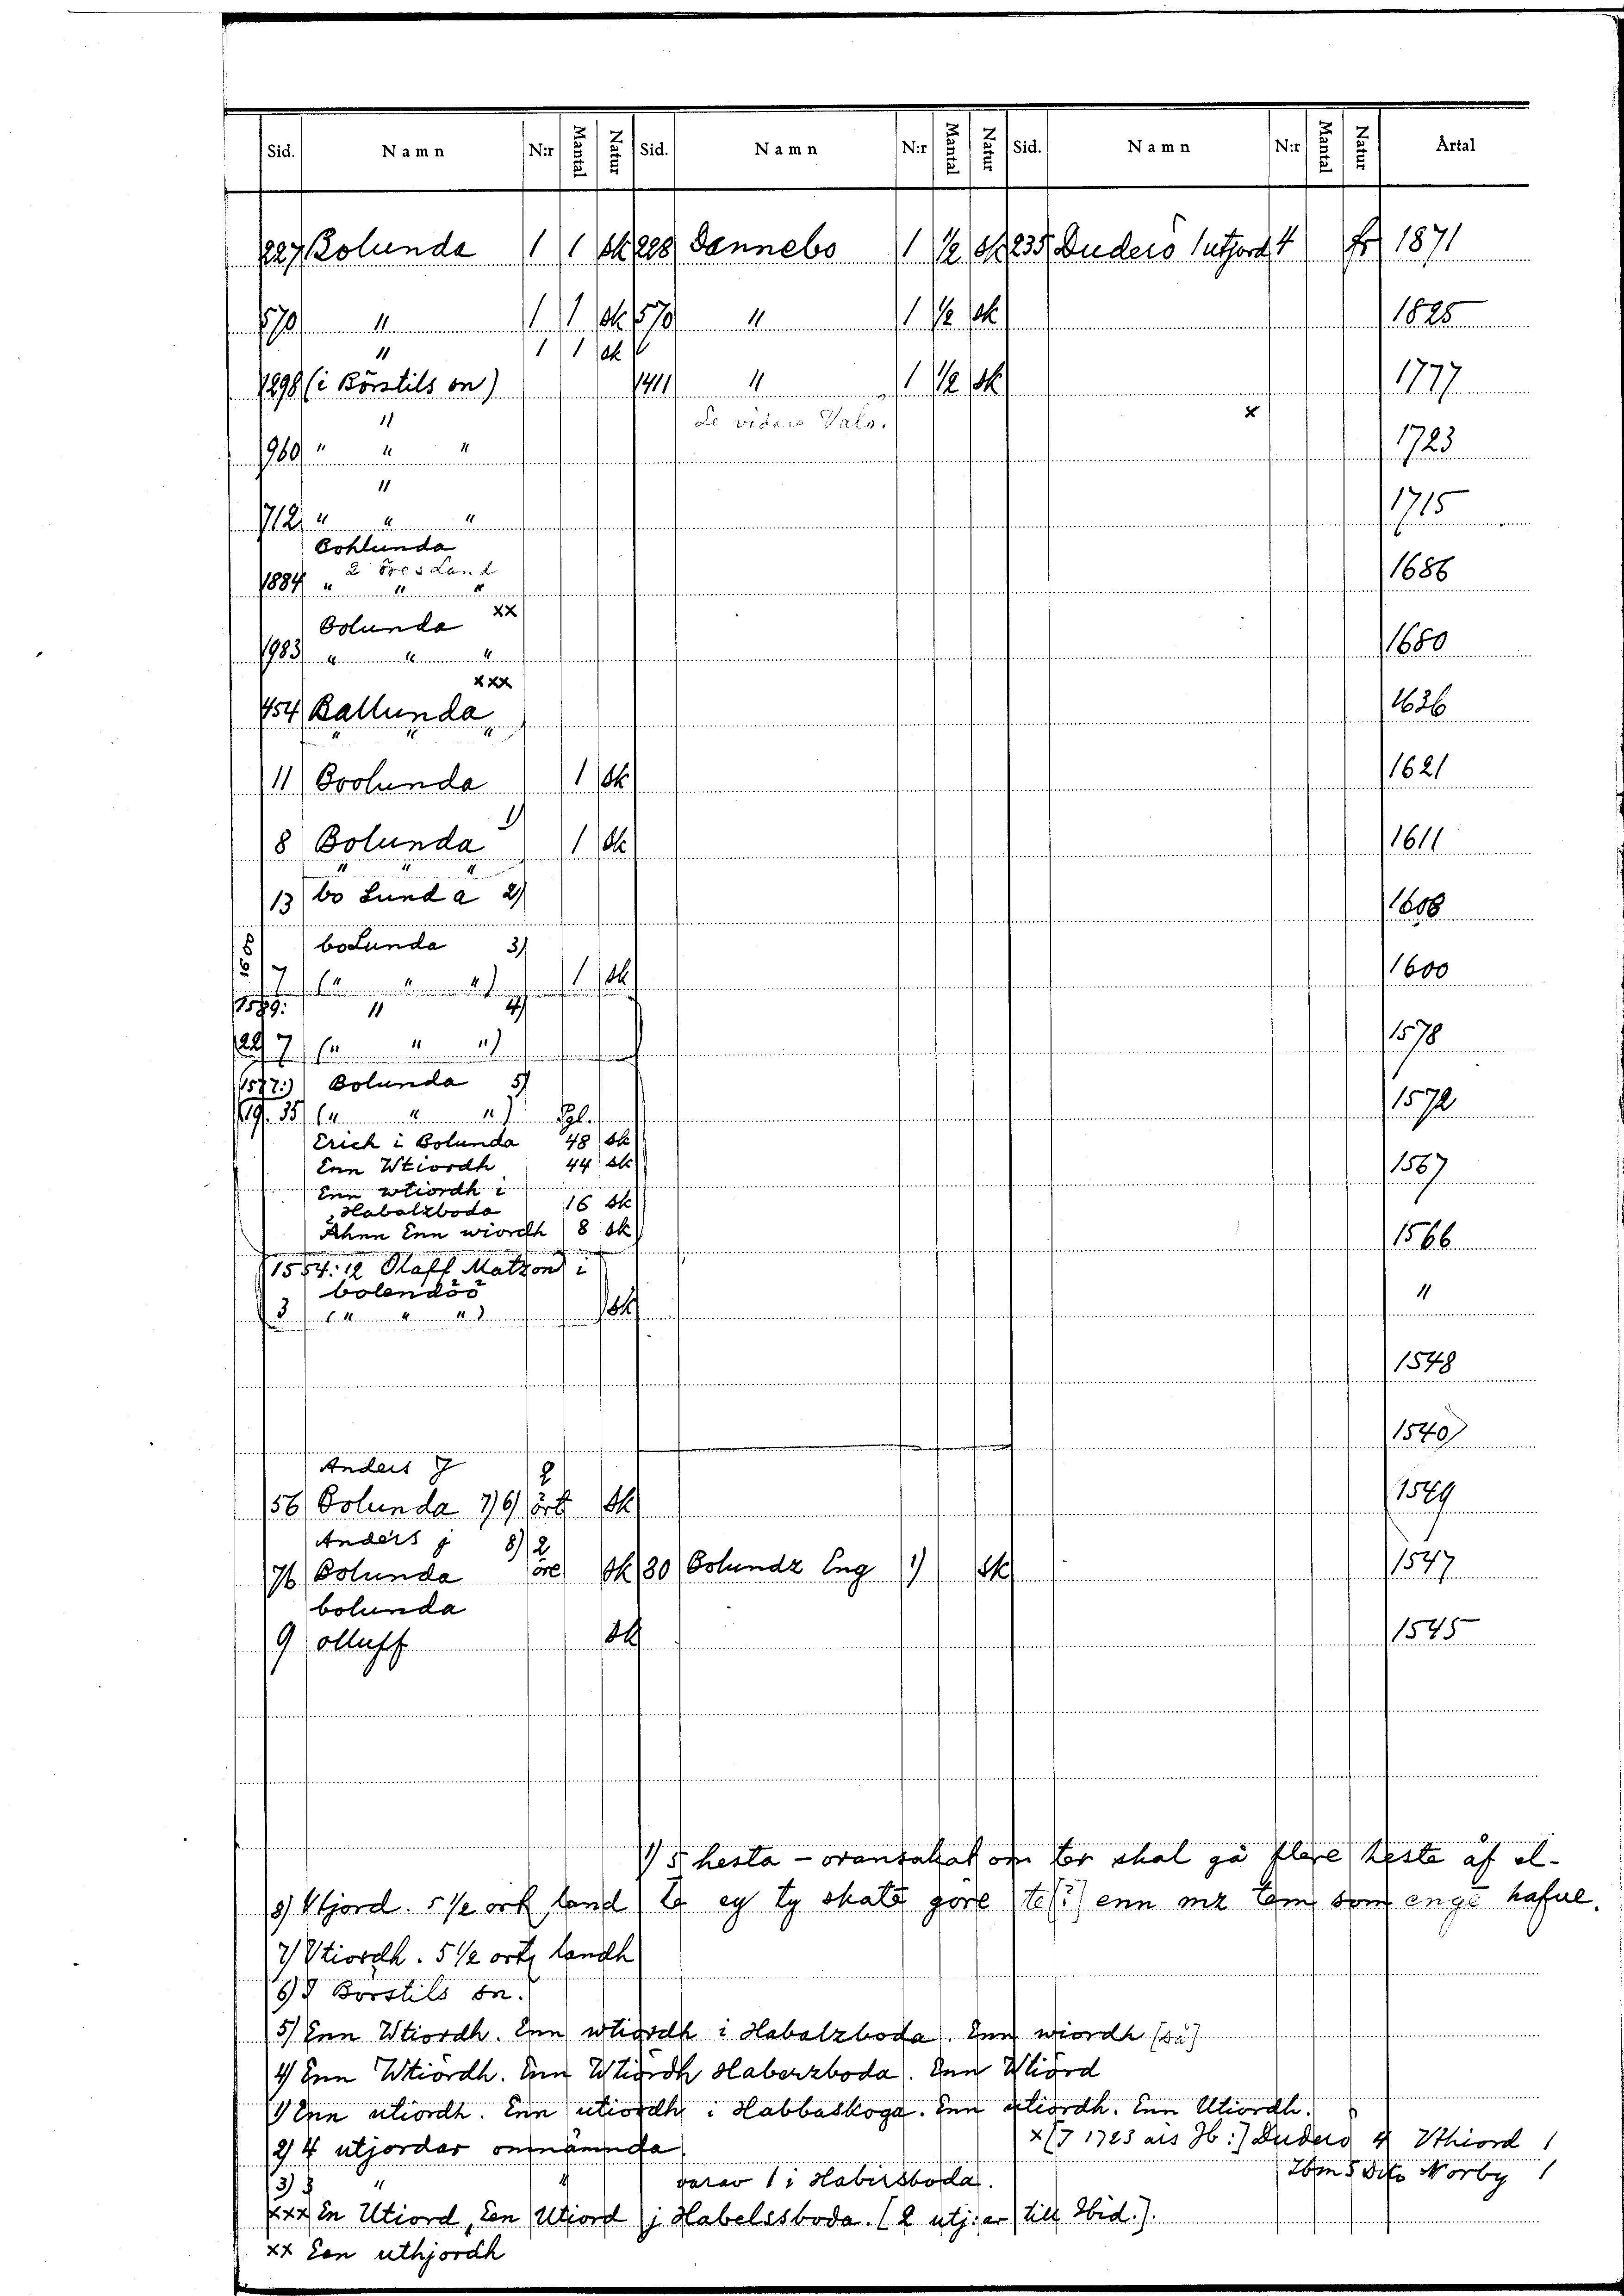 Sid. Namn N:r Mantal Natur Sid. Namn N:r Mantal Natur Sid. Namn N:r Mantal Natur Årtal
227 Bolunda 1 1 sk 228 Dannebo 1 1/2 sk 235 Duderö 1 utjord 4 fr 1871
570 " 1 1 sk 570 " 1 1/2 sk 1825
" 1 1 sk
1298 (i Börstils sn) 1411 " 1 1/2 sk 1777
" Se vidare Valö. x
960 " " " 1723
"
712 " " " 1715
Bohlunda
2 öres Land
1884 " " " 1686
Bolunda xx
1983 " " " 1680
xxx
454 Ballunda 1636
" " "
11 Boolunda 1 sk 1621
8 Bolunda 1) 1 sk 1611
" " "
13 bo Lunda 2) 1608
boLunda 3)
7 (" " ") 1 sk 1600
1589: " 4)
22 7 (" " ") 1578
(1577:) Bolunda 5)
19. 35 (" " ") 1572
Erich i Bolunda 48 sk
Enn Wtiordh 44 sk 1567
Enn wtiordh i
Habalzboda 16 sk
Åhnn Enn wiordh 8 sk 1566
1554: 12 Olaff Matzon i
bolendöö "
3 (" " ") sk
1548
1540
Anders J 2
56 Bolunda 7) 6) ört sk 1549
Anders j 8) 2
76 Bolunda öre sk 30 Bolundz Eng 1) sk 1547
bolunda
9 olluff sk 1545
1) 5 hesta - oransakat om ter skal gå flere heste åf el-
8) Utjord. 5 1/2 ort land te ey ty skatt göre te[?] enn mz tem som enge hafue.
7) Vtiordh. 5 1/2 ortz landh
6) I Börstils sn.
5) Enn Wtiordh. Enn wtiordh i Habalzboda. Enn wiordh [så]
4) Enn Wtiördh. Enn Wtiördh Haberzboda. Enn Wtiörd
1) Enn utiordh. Enn utiordh i Habbaskoga. Enn utiordh. Enn Utiordh.
2) 4 utjordar omnämnda x [I 1723 års Jb:] Duderö 4 Vthiord 1
3) 3 " " varav 1 i Habirsboda. Ibm 5 Dito Norby 1
xxx En Utiord, Een Utiord j Habelssboda. [2 utj:er till Ibid.].
xx Een uthjordh